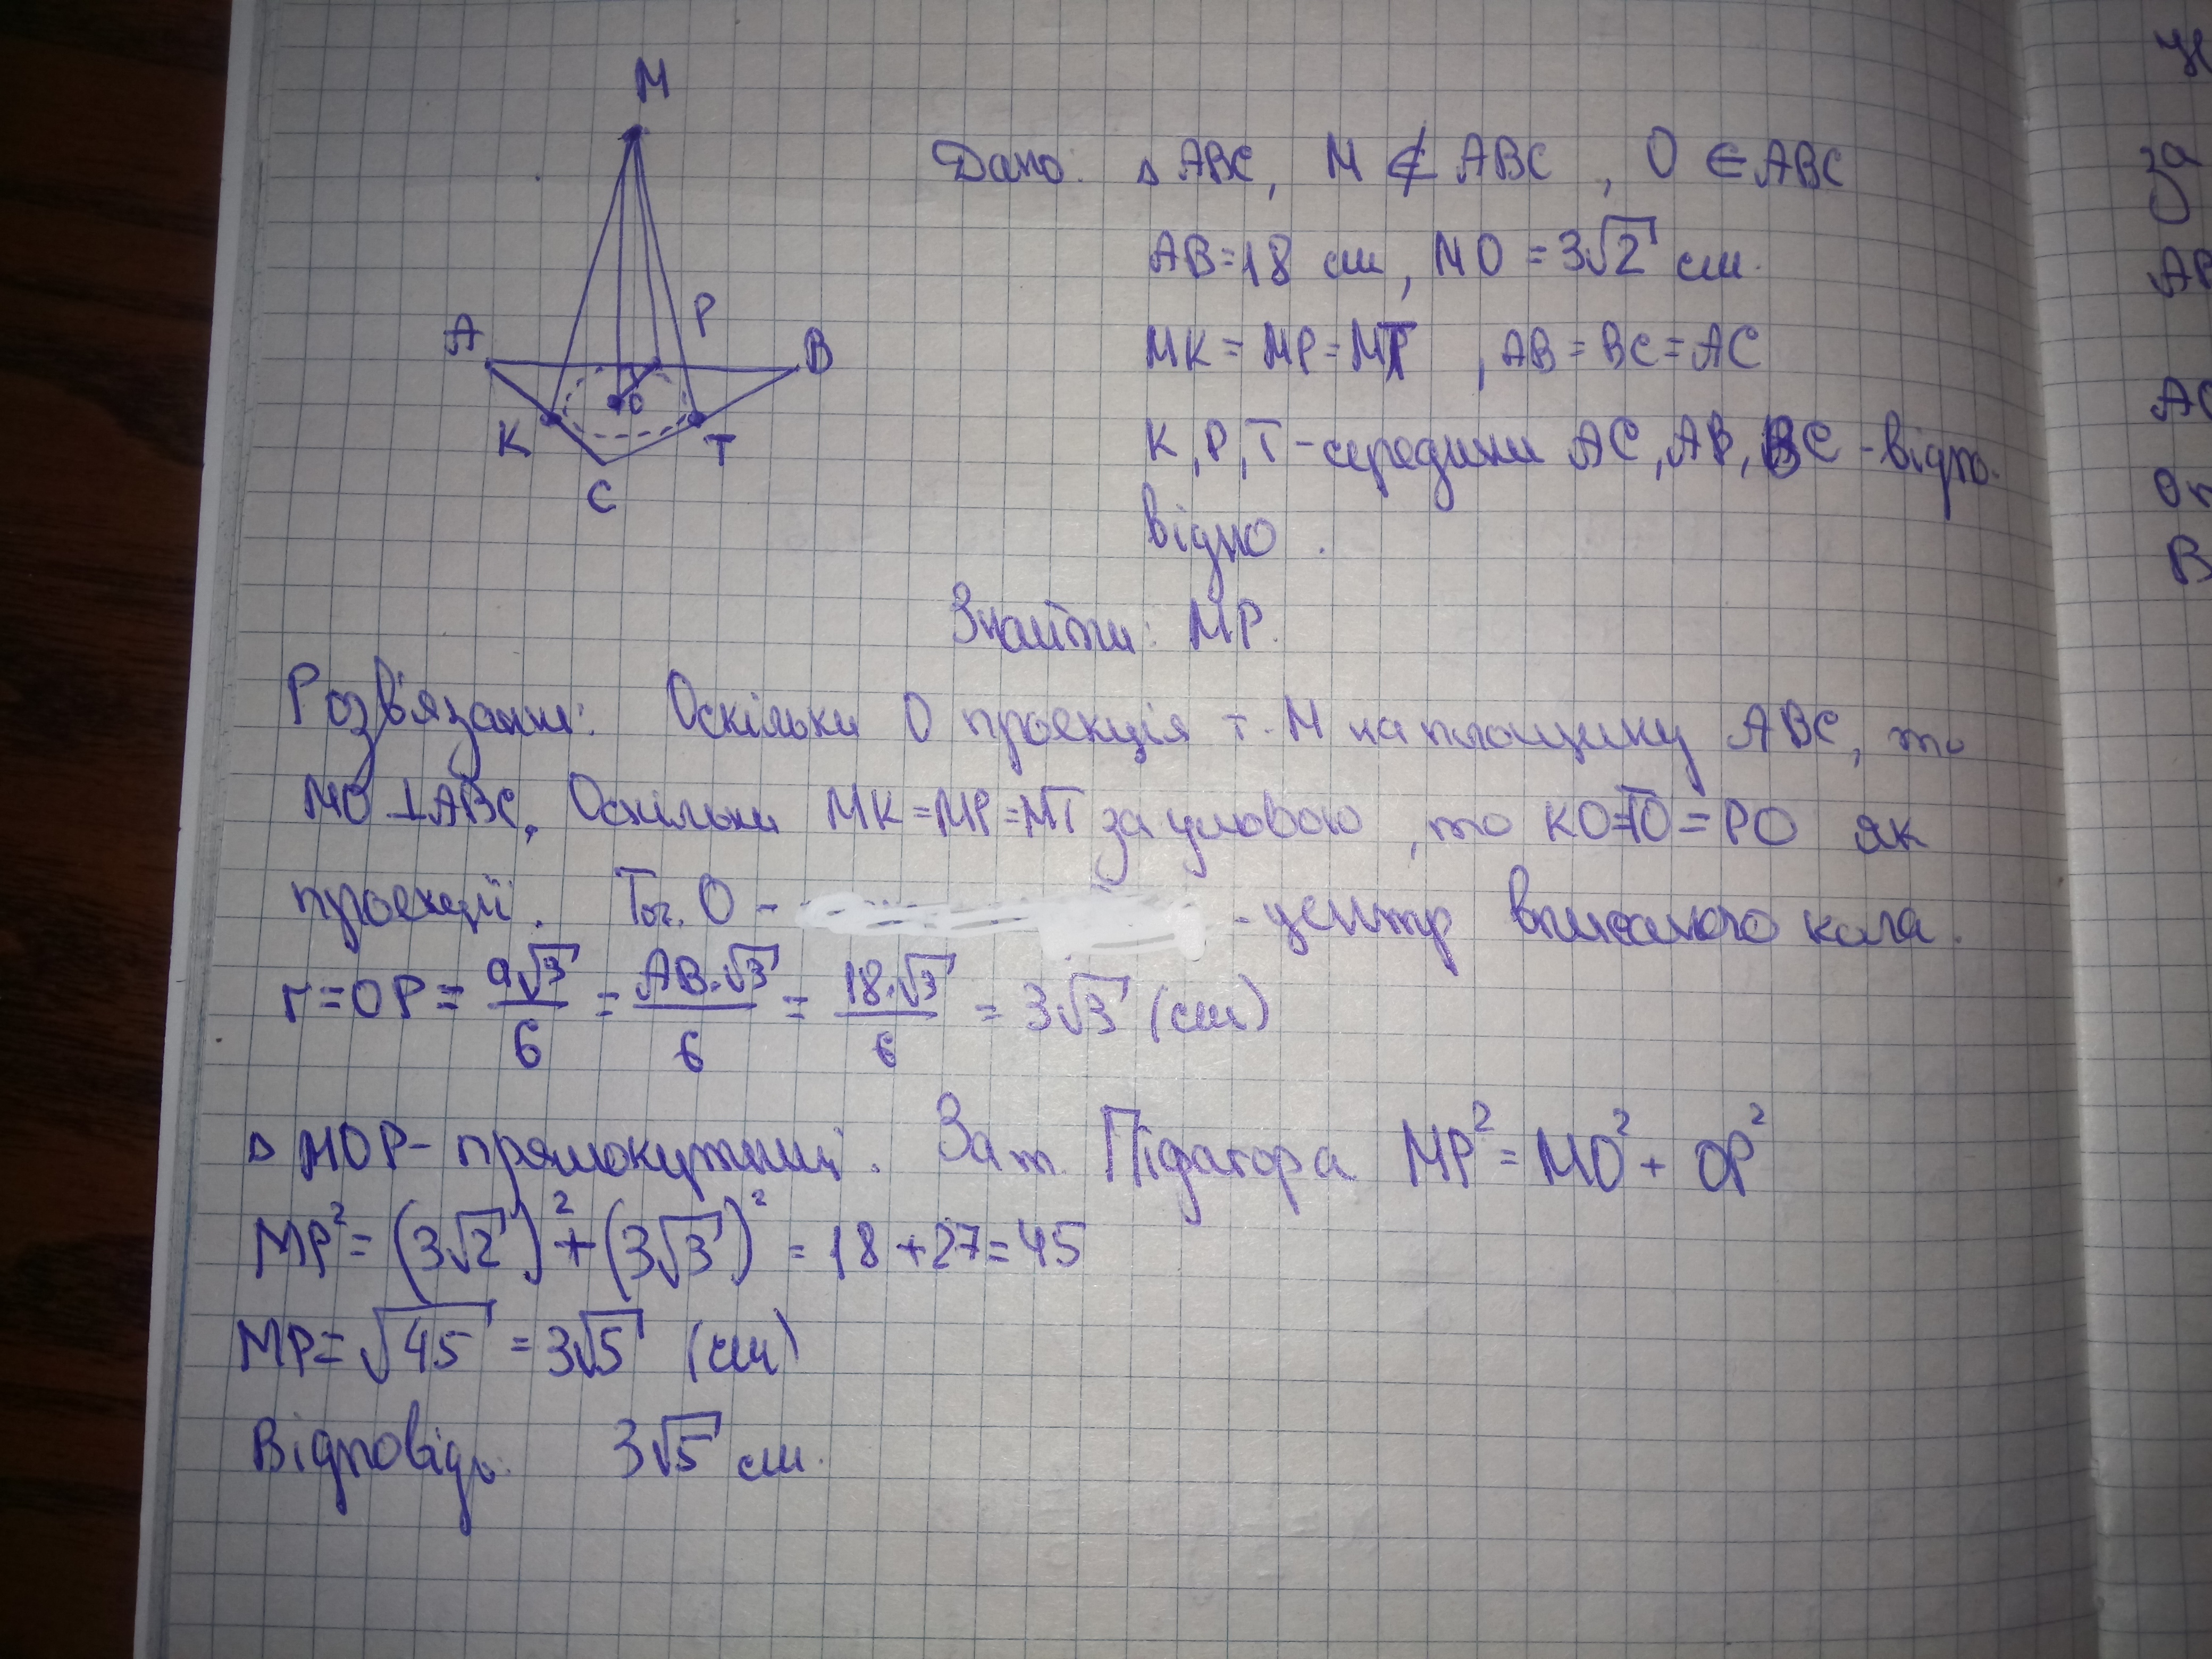 M
A
P
B
K
O
T
C
Дано: △ ABC, M ∉ ABC, O ∈ ABC
AB=18 см, MO = 3√2 см.
MK = MP = MT, AB = BC = AC
K, P, T - середини AC, AB, BC - відпо-
відно.
Знайти: MP.
Розв'язання: Оскільки O проекція т. M на площину ABC, то
MO ⊥ ABC. Оскільки MK = MP = MT за умовою, то KO=TO = PO як
проекції. Точ. O - - центр вписаного кола.
r = OP = a√3/6 = AB·√3/6 = 18·√3/6 = 3√3 (см)
△ MOP - прямокутний. За т. Піфагора MP² = MO² + OP²
MP² = (3√2)² + (3√3)² = 18 + 27 = 45
MP = √45 = 3√5 (см)
Відповідь: 3√5 см.
за
AB
AC
В